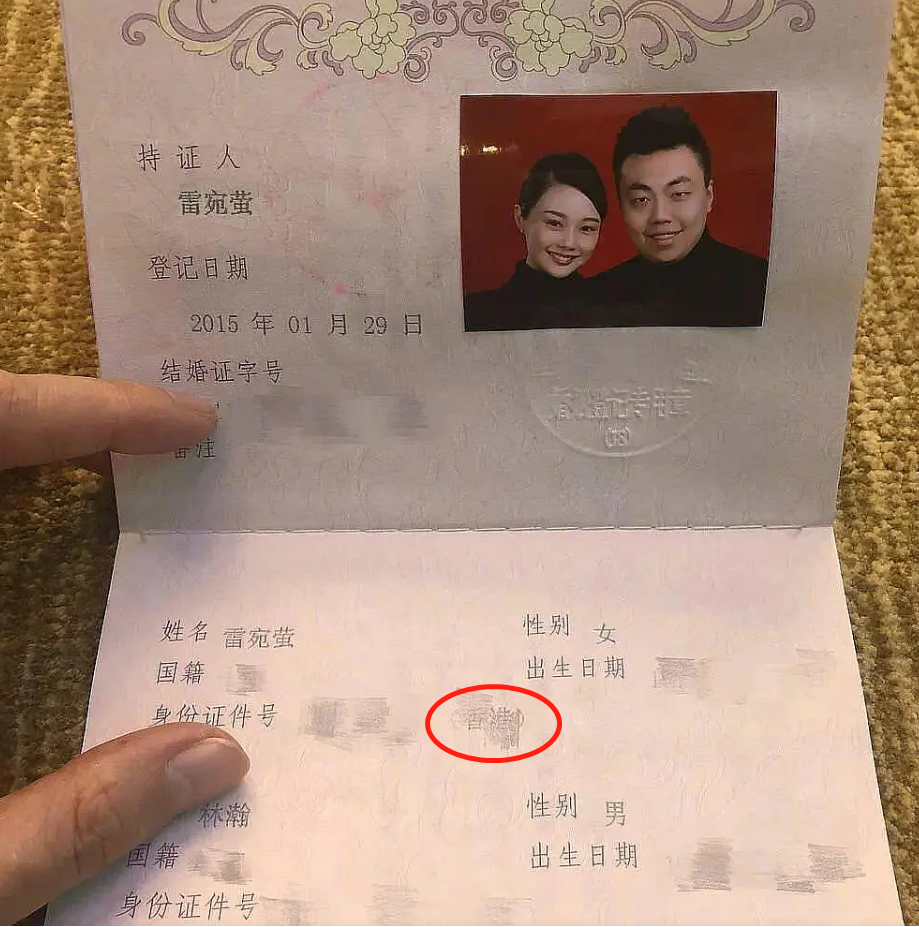 持证人
雷宛萤
登记日期
2015 年 01 月 29 日
结婚证字号
备注
登记专用章
姓名 雷宛萤 性别 女
国籍 出生日期
身份证件号 (香港)
林瀚 性别 男
国籍 出生日期
身份证件号